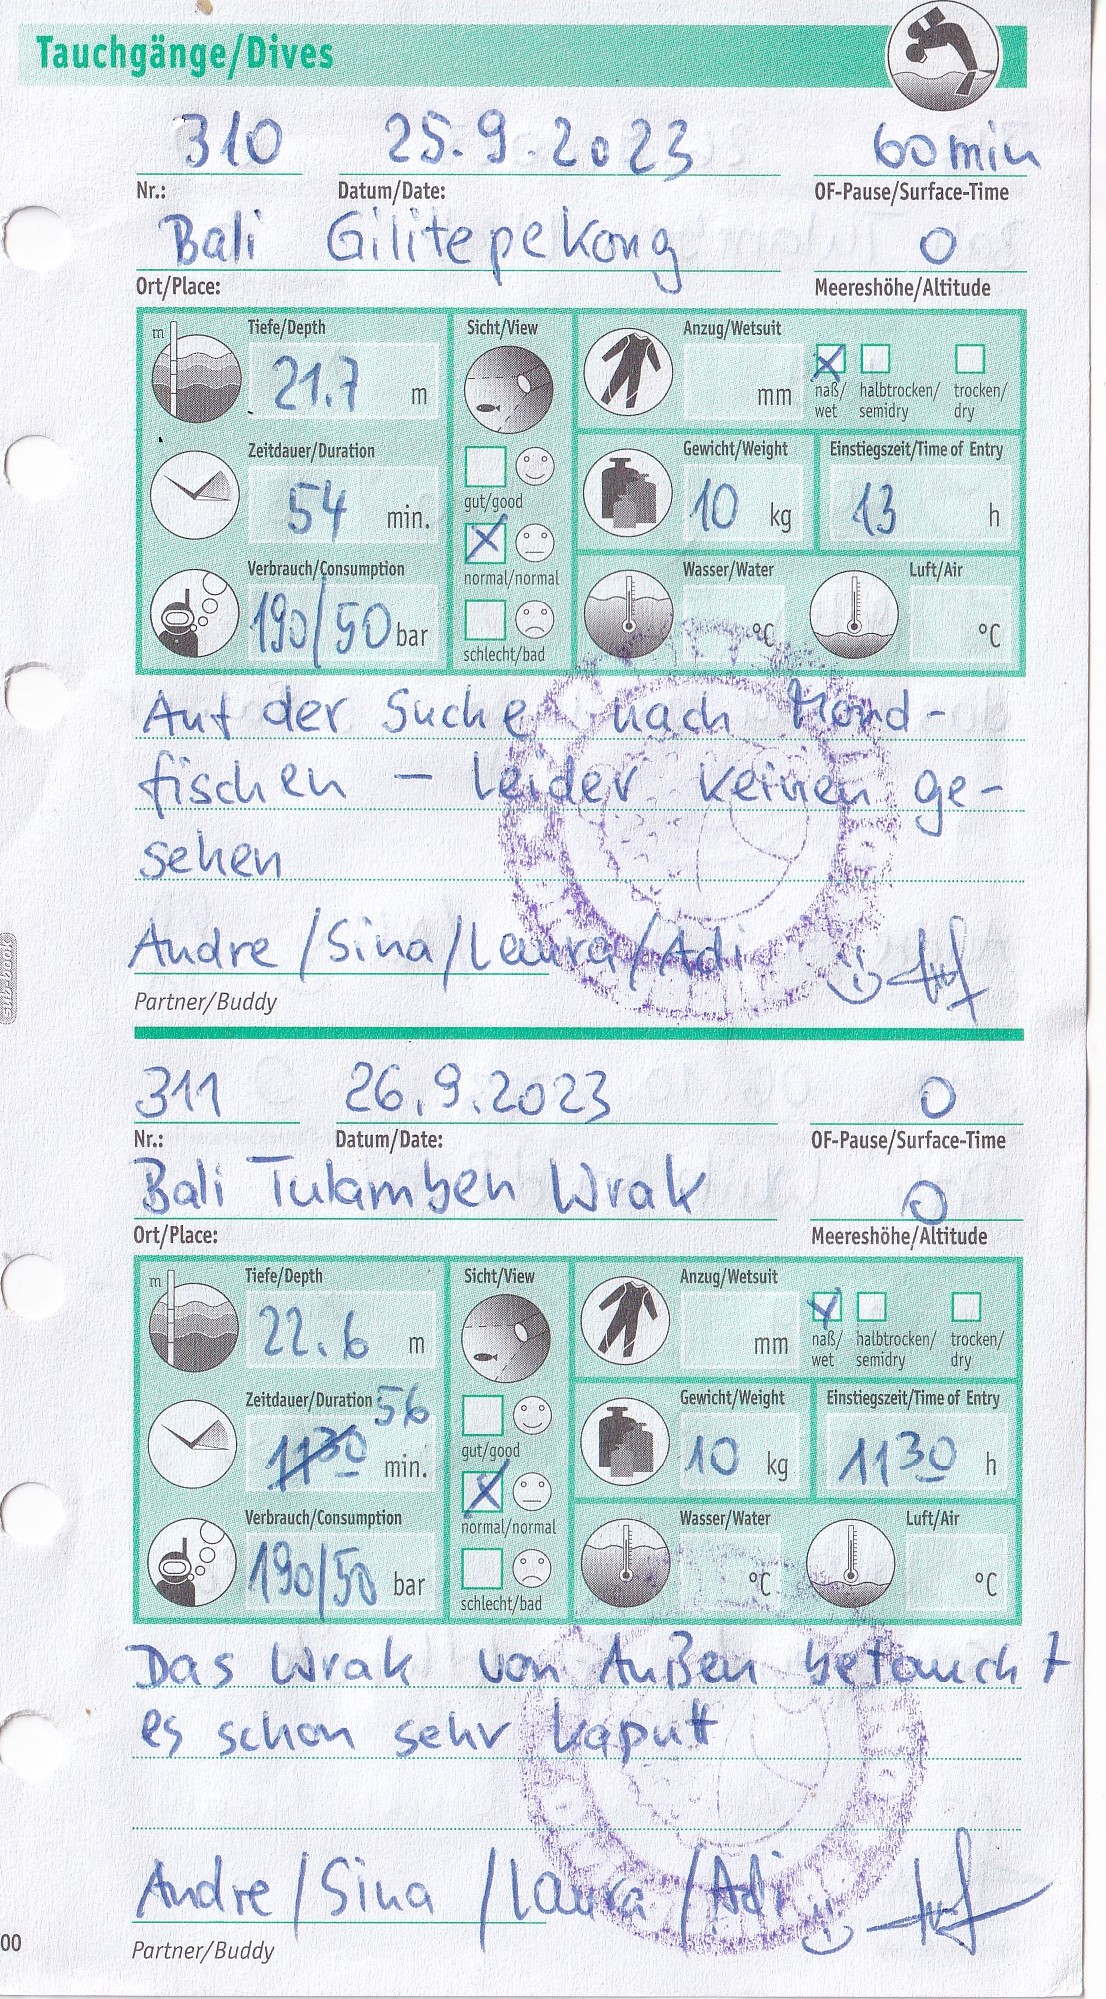 Tauchgänge/Dives
310 25.9.2023 60 min
Nr.: Datum/Date: OF-Pause/Surface-Time
Bali Gilitepekong 0
Ort/Place: Meereshöhe/Altitude
m Tiefe/Depth Sicht/View Anzug/Wetsuit
21.7 m mm naß/ halbtrocken/ trocken/
wet semidry dry
Zeitdauer/Duration Gewicht/Weight Einstiegszeit/Time of Entry
54 min. gut/good 10 kg 13 h
Verbrauch/Consumption normal/normal Wasser/Water Luft/Air
190/50 bar schlecht/bad °C °C
Auf der Suche nach Mond-
fischen – leider keinen ge-
sehen
Andre /Sina/Laura/Adi
Partner/Buddy
sub-book
311 26.9.2023 0
Nr.: Datum/Date: OF-Pause/Surface-Time
Bali Tulamben Wrak 0
Ort/Place: Meereshöhe/Altitude
m Tiefe/Depth Sicht/View Anzug/Wetsuit
22.6 m mm naß/ halbtrocken/ trocken/
wet semidry dry
Zeitdauer/Duration 56 Gewicht/Weight Einstiegszeit/Time of Entry
1130 min. gut/good 10 kg 1130 h
Verbrauch/Consumption normal/normal Wasser/Water Luft/Air
190/50 bar schlecht/bad °C °C
Das Wrak von Außen betaucht
es schon sehr kaputt
Andre /Sina /Laura /Adi
00
Partner/Buddy